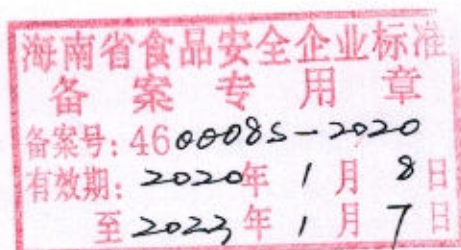 海南省食品安全企业标准
备案专用章
备案号: 460008S-2020
有效期: 2020年1月8日
至2023年1月7日